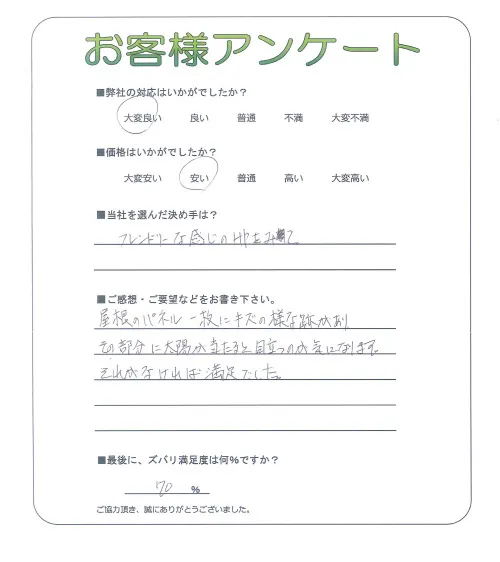 お客様アンケート
■弊社の対応はいかがでしたか？
大変良い 良い 普通 不満 大変不満
■価格はいかがでしたか？
大変安い 安い 普通 高い 大変高い
■当社を選んだ決め手は？
フレンドリーな感じのHPをみて
■ご感想・ご要望などをお書き下さい。
屋根のパネル一枚にキズの様な跡があり
その部分に太陽が当たると目立つのが気になります。
それがなければ満足でした。
■最後に、ズバリ満足度は何%ですか？
70 %
ご協力頂き、誠にありがとうございました。